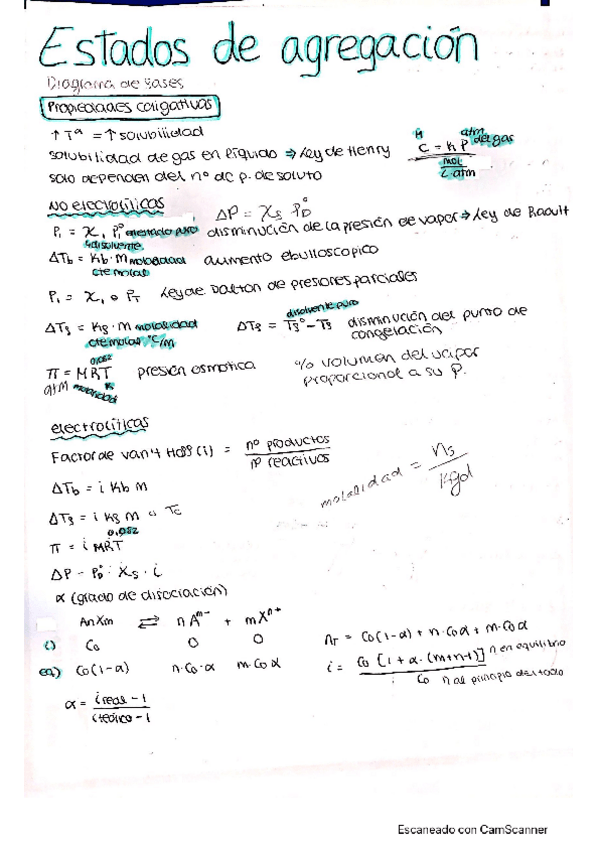 Estados de agregación
Diagrama de fases
Propiedades coligativas
↑ Tª = ↑ solubilidad
solubilidad de gas en líquido ⇒ Ley de Henry
M atm del gas
C = K P
mol
L·atm
solo dependen del nº de p. de soluto
No electrolíticas
ΔP = Xs P°D
P1 = X1 P1° en estado puro disminución de la presión de vapor ⇒ Ley de Raoult
disolvente
ΔTb = Kb · m molalidad aumento ebulloscopico
cte molal
P1 = X1 · PT Ley de Dalton de presiones parciales
disolvente puro
ΔTf = Kf · m molalidad ΔTf = Tf° - Tf disminución del punto de congelación
cte molal °C/m
0,082
π = MRT presión osmotica
atm molaridad K
% volumen del vapor
proporcional a su P.
electrolíticas
Factor de van't Hoff (i) = nº productos / nº reactivos
molalidad = ns / Kgd
ΔTb = i Kb m
ΔTf = i Kf m
0,082
π = i MRT
ΔP = P°D · Xs · i
α (grado de disociación)
AnXm ⇌ nA^m- + mX^n+
i) Co 0 0
eq) Co(1-α) n·Co·α m·Co α
nT = Co(1-α) + n·Coα + m·Coα
i = Co [1 + α·(m+n-1)] / Co
n en equilibrio
n al principio del todo
α = i real - 1 / i teórico - 1
Escaneado con CamScanner